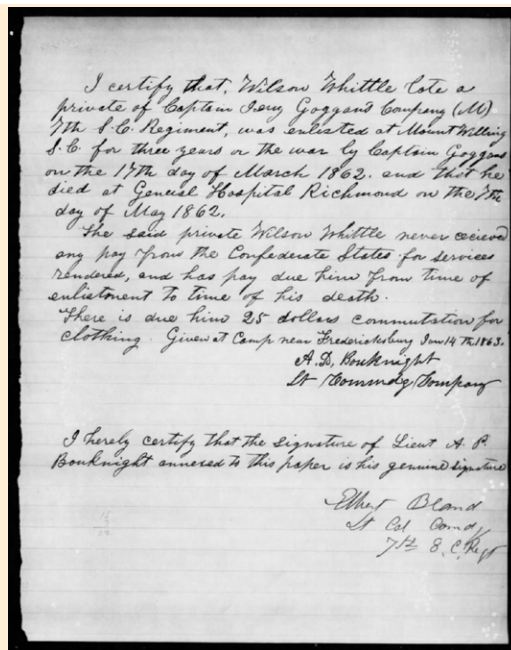 I certify that, Wilson Whittle late a
private of Captain Jerry Goggans Company (M)
7th S.C. Regiment, was enlisted at Mount Willing
S.C. for three years or the war by Captain Goggans
on the 17th day of March 1862. and that he
died at General Hospital Richmond on the 7th
day of May 1862.
The said private Wilson Whittle never recieved
any pay from the Confederate States for services
rendered, and has pay due him from time of
enlistment to time of his death.
There is due him 25 dollars commutation for
clothing. Given at Camp near Fredericksburg Jan 14th 1863.
A. D. Bouknight
Lt Commdg Company
I hereby certify that the signature of Lieut A. P.
Bouknight annexed to this paper is his genuine signature
Elbert Bland
Lt Col Comd,
7th S.C. Regt